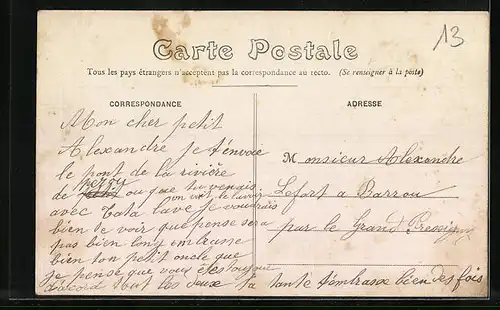 13
Carte Postale
Tous les pays étrangers n'acceptent pas la correspondance au recto. (Se renseigner à la poste)
CORRESPONDANCE
Mon cher petit
Alexandre je t'envoie
le pont de la rivière
de ou que tu venais
avec tata lavé je voudrais
on voit le lavoir
bien te voir que pense sera
pas bien long embrasse
bien ton petit oncle que
je pense que vous êtes
d'acord tout les deux ta tante t'embrasse bien des fois
ADRESSE
Monsieur Alexandre
Lefort a Barrou
par le Grand Pressigny